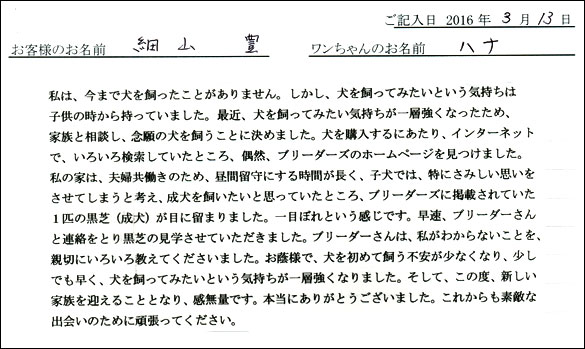 ご記入日 2016 年 3 月 13 日
お客様のお名前 細山 豊 ワンちゃんのお名前 ハナ
私は、今まで犬を飼ったことがありません。しかし、犬を飼ってみたいという気持ちは
子供の時から持っていました。最近、犬を飼ってみたい気持が一層強くなったため、
家族と相談し、念願の犬を飼うことに決めました。犬を購入するにあたり、インターネット
で、いろいろ検索していたところ、偶然、ブリーダーズのホームページを見つけました。
私の家は、夫婦共働きのため、昼間留守にする時間が長く、子犬では、特にさみしい思いを
させてしまうと考え、成犬を飼いたいと思っていたところ、ブリーダーズに掲載されていた
1匹の黒芝（成犬）が目に留まりました。一目ぼれという感じです。早速、ブリーダーさん
と連絡をとり黒芝の見学させていただきました。ブリーダーさんは、私がわからないことを、
親切にいろいろ教えてくださいました。お蔭様で、犬を初めて飼う不安が少なくなり、少し
でも早く、犬を飼ってみたいという気持ちが一層強くなりました。そして、この度、新しい
家族を迎えることとなり、感無量です。本当にありがとうございました。これからも素敵な
出会いのために頑張ってください。